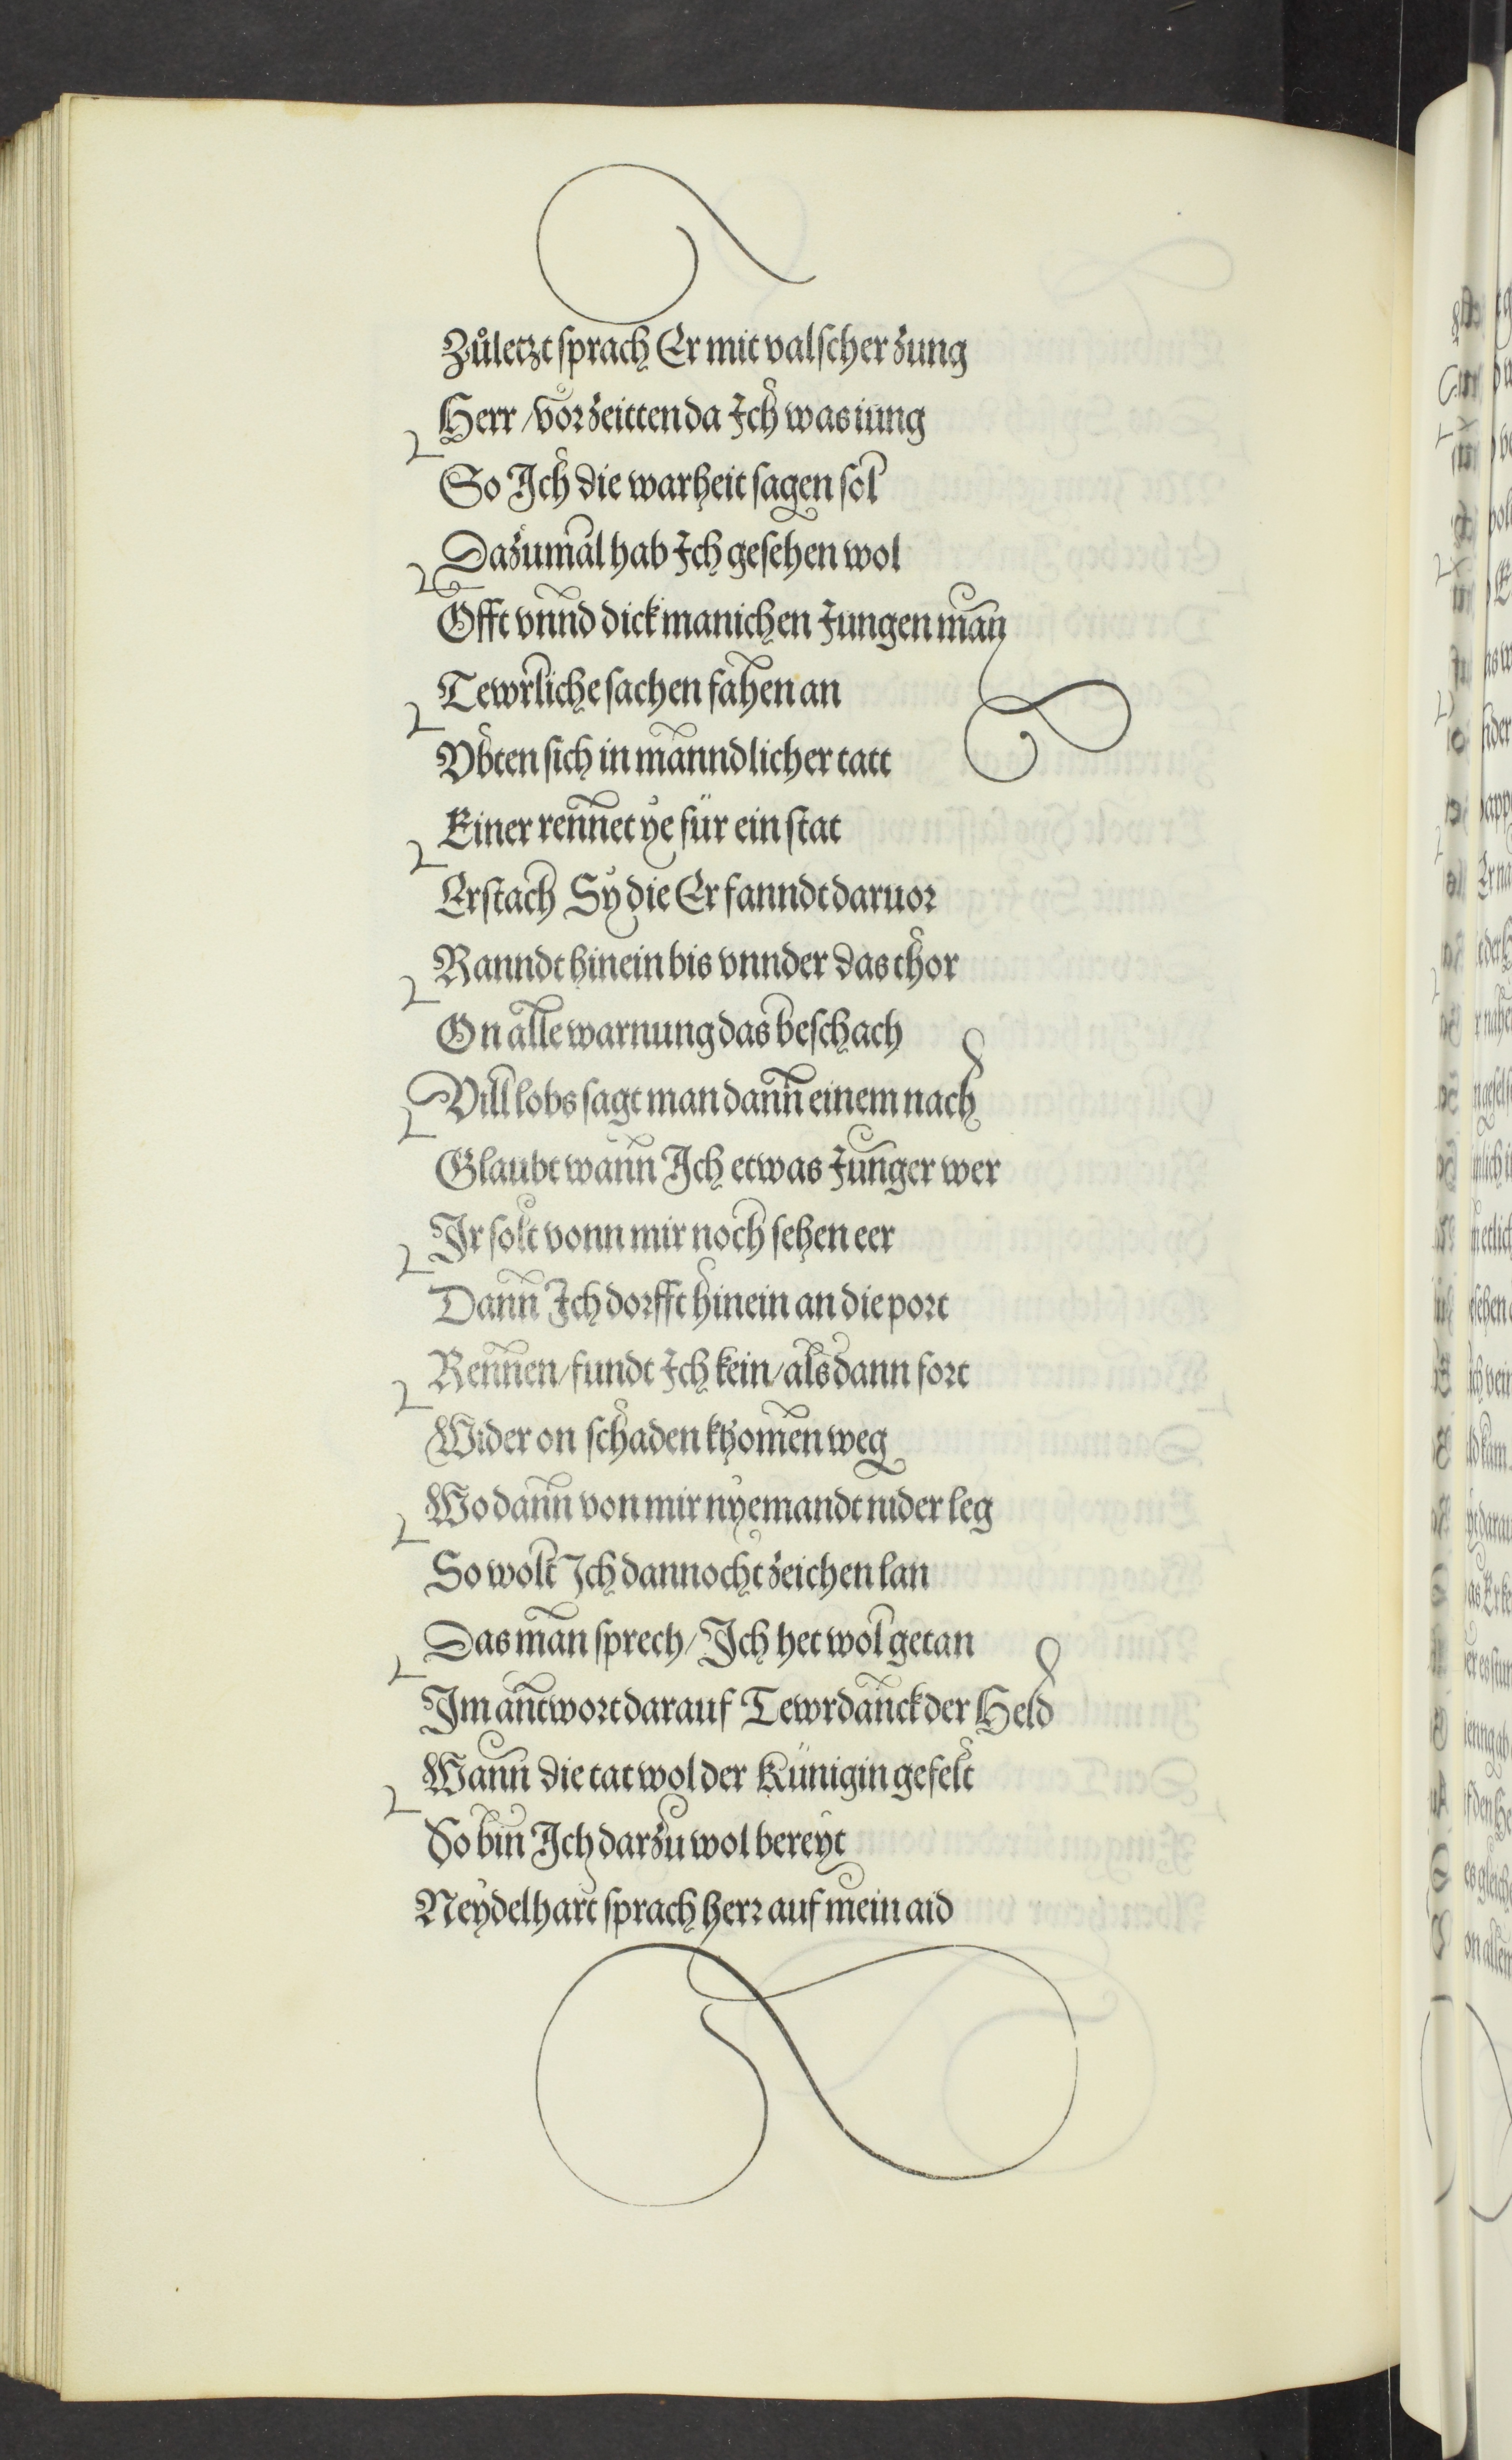 Zůletzt sprach Er mit valscher zung
Herr/ vor zeitten da Ich was iung
So Ich die warheit sagen sol
Dazumal hab Ich gesehen wol
Offt vnnd dick manichen Jungen man
Tewrliche sachen fahen an
Vbten sich in manndlicher tatt
Einer rennet ye für ein stat
Erstach Sy die Er fanndt daruor
Ranndt hinein bis vnnder das thor
On alle warnung das beschach
Vill lobs sagt man dann einem nach
Glaubt wann Ich etwas Junger wer
Ir solt vonn mir noch sehen eer
Dann Ich dorfft hinein an die port
Rennen/ fundt Ich kein/ als dann fort
Wider on schaden khomen weg
Wo dann von mir nyemandt nider leg
So wolt Ich dannocht zeichen lan
Das man sprech/ Ich het wol getan
Im antwort darauf Tewrdanck der Held
Wann die tat wol der Künigin gefelt
So bin Ich darzu wol bereyt
Neydelhart sprach herr auf mein aid